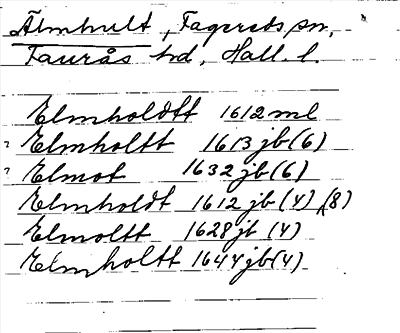 Älmhult, Fagereds sn,
Faurås hd, Hall. l.
Elmholdtt 1612 ml
? Elmholtt 1613 jb (6)
? Elmot 1632 jb (6)
Elmholdt 1612 jb (4) (8)
Elmoltt 1628 jb (4)
Elmholtt 1644 jb (4)